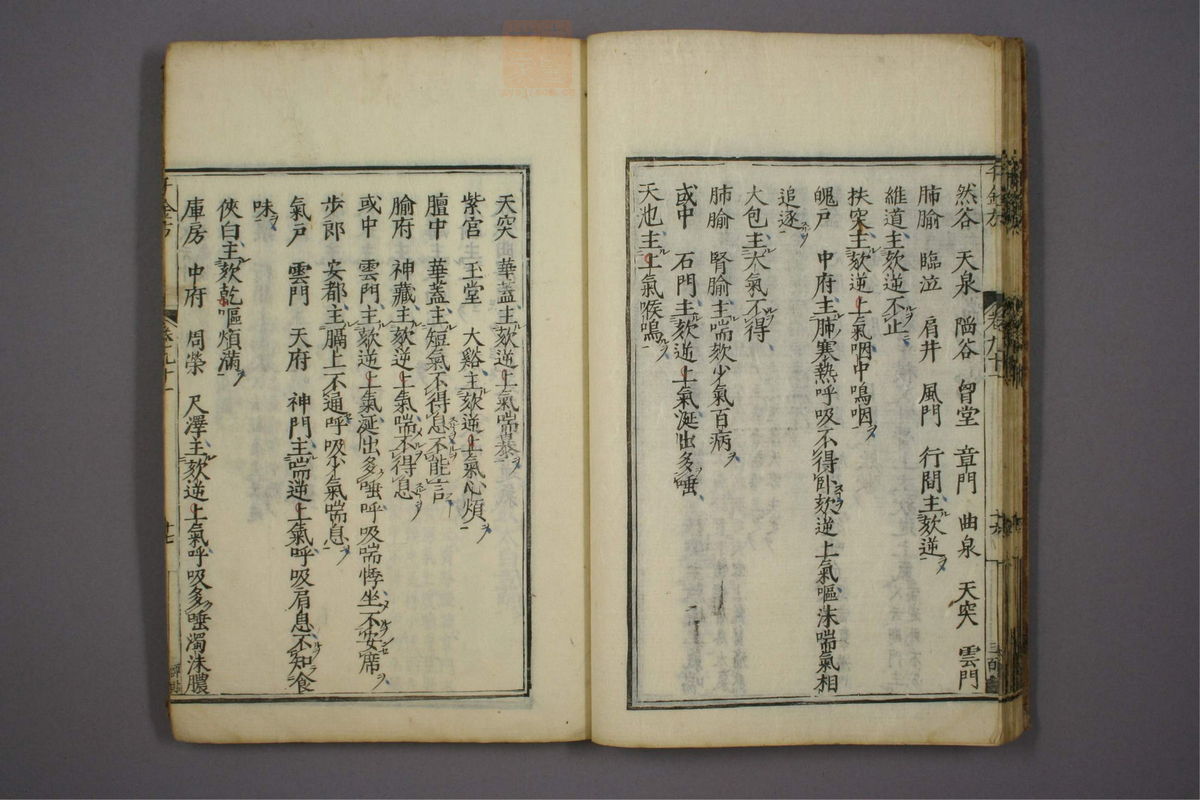 然谷　天泉　陷谷　胷堂　章門　曲泉　天突　雲門
肺腧　臨泣　肩井　風門　行間主欬逆
維道主欬逆不止
扶突主欬逆上氣咽中鳴咽
魄戸　中府主肺寒熱呼吸不得卧欬逆上氣嘔沫喘氣相
追逐
大包主大氣不得
肺腧　腎腧主喘欬少氣百病
或中　石門主欬逆上氣涎出多唾
天池主上氣喉鳴
天突　華蓋主欬逆上氣喘暴
紫宫　玉堂　大谿主欬逆上氣心煩
膻中　華蓋主短氣不得息不能言
腧府　神藏主欬逆上氣喘不得息
或中　雲門主欬逆上氣涎出多唾呼吸喘悸坐不安席
歩郎　安都主膈上不通呼吸少氣喘息
氣戸　雲門　天府　神門主喘逆上氣呼吸肩息不知食
味
俠白主欬乾嘔煩滿
庫房　中府　周榮　尺澤主欬逆上氣呼吸多唾濁沫膿